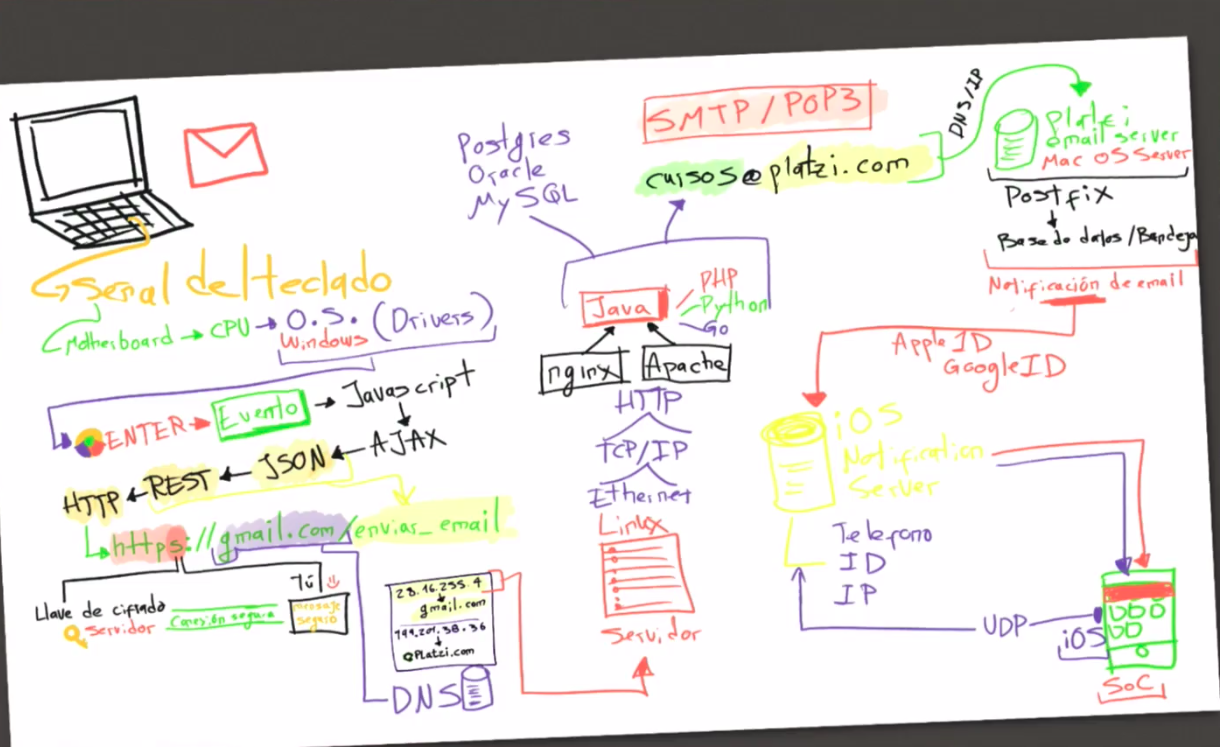 Señal del teclado
Motherboard → CPU → O.S. (Drivers)
Windows
ENTER → Evento → Javascript
AJAX
HTTP ← REST ← JSON ←
https://gmail.com/enviar_email
Llave de cifrado
Servidor
Conexión segura
Tú
mensaje
seguro
28.16.255.4
gmail.com
199.201.38.36
Platzi.com
DNS
Postgres
Oracle
MySQL
SMTP/POP3
cursos@platzi.com
Java
PHP
Python
Go
nginx
Apache
HTTP
TCP/IP
Ethernet
Linux
Servidor
DNS/IP
platzi
email server
Mac OS Server
Postfix
Base de datos/Bandeja
Notificación de email
Apple ID
Google ID
iOS
Notification
Server
Telefono
ID
IP
UDP
iOS
SoC